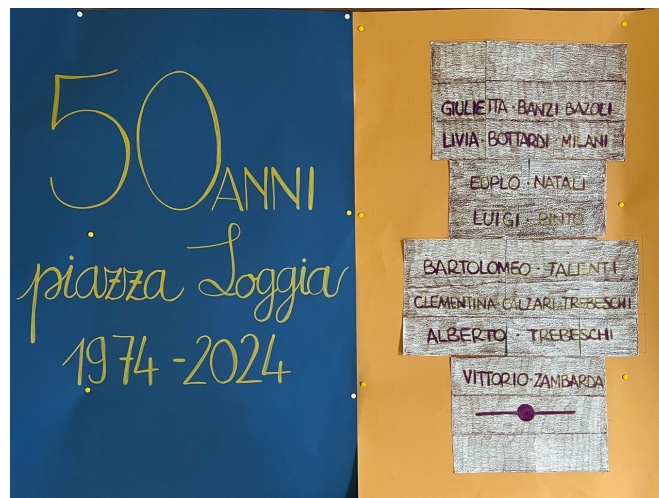 50 ANNI
piazza Loggia
1974-2024
GIULIETTA·BANZI BAZOLI
LIVIA·BOTTARDI·MILANI
EUPLO·NATALI
LUIGI·PINTO
BARTOLOMEO·TALENTI
CLEMENTINA·CALZARI·TREBESCHI
ALBERTO·TREBESCHI
VITTORIO·ZAMBARDA